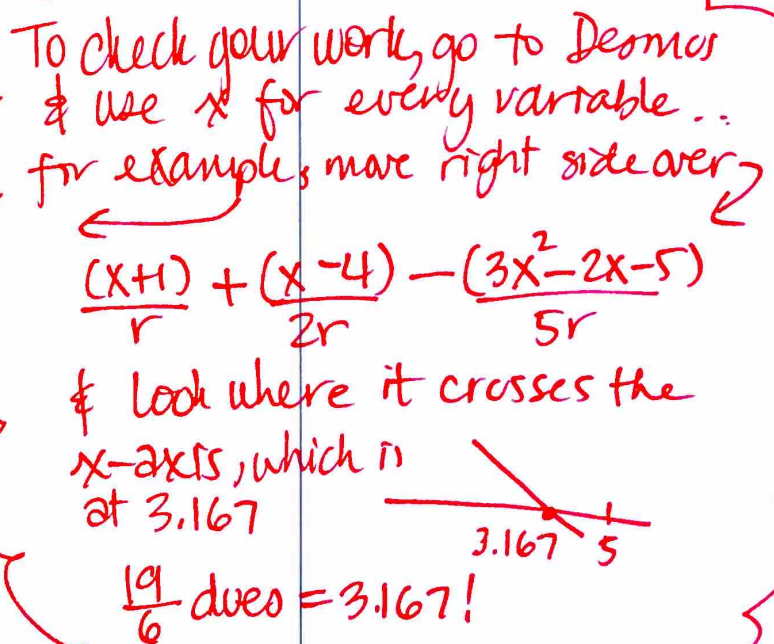 To check your work, go to Desmos
& use x for every variable..
for example, move right side over
(x+1)/r + (x-4)/2r - (3x²-2x-5)/5r
& look where it crosses the
x-axis, which is
at 3.167
3.167 5
19/6 does = 3.167!